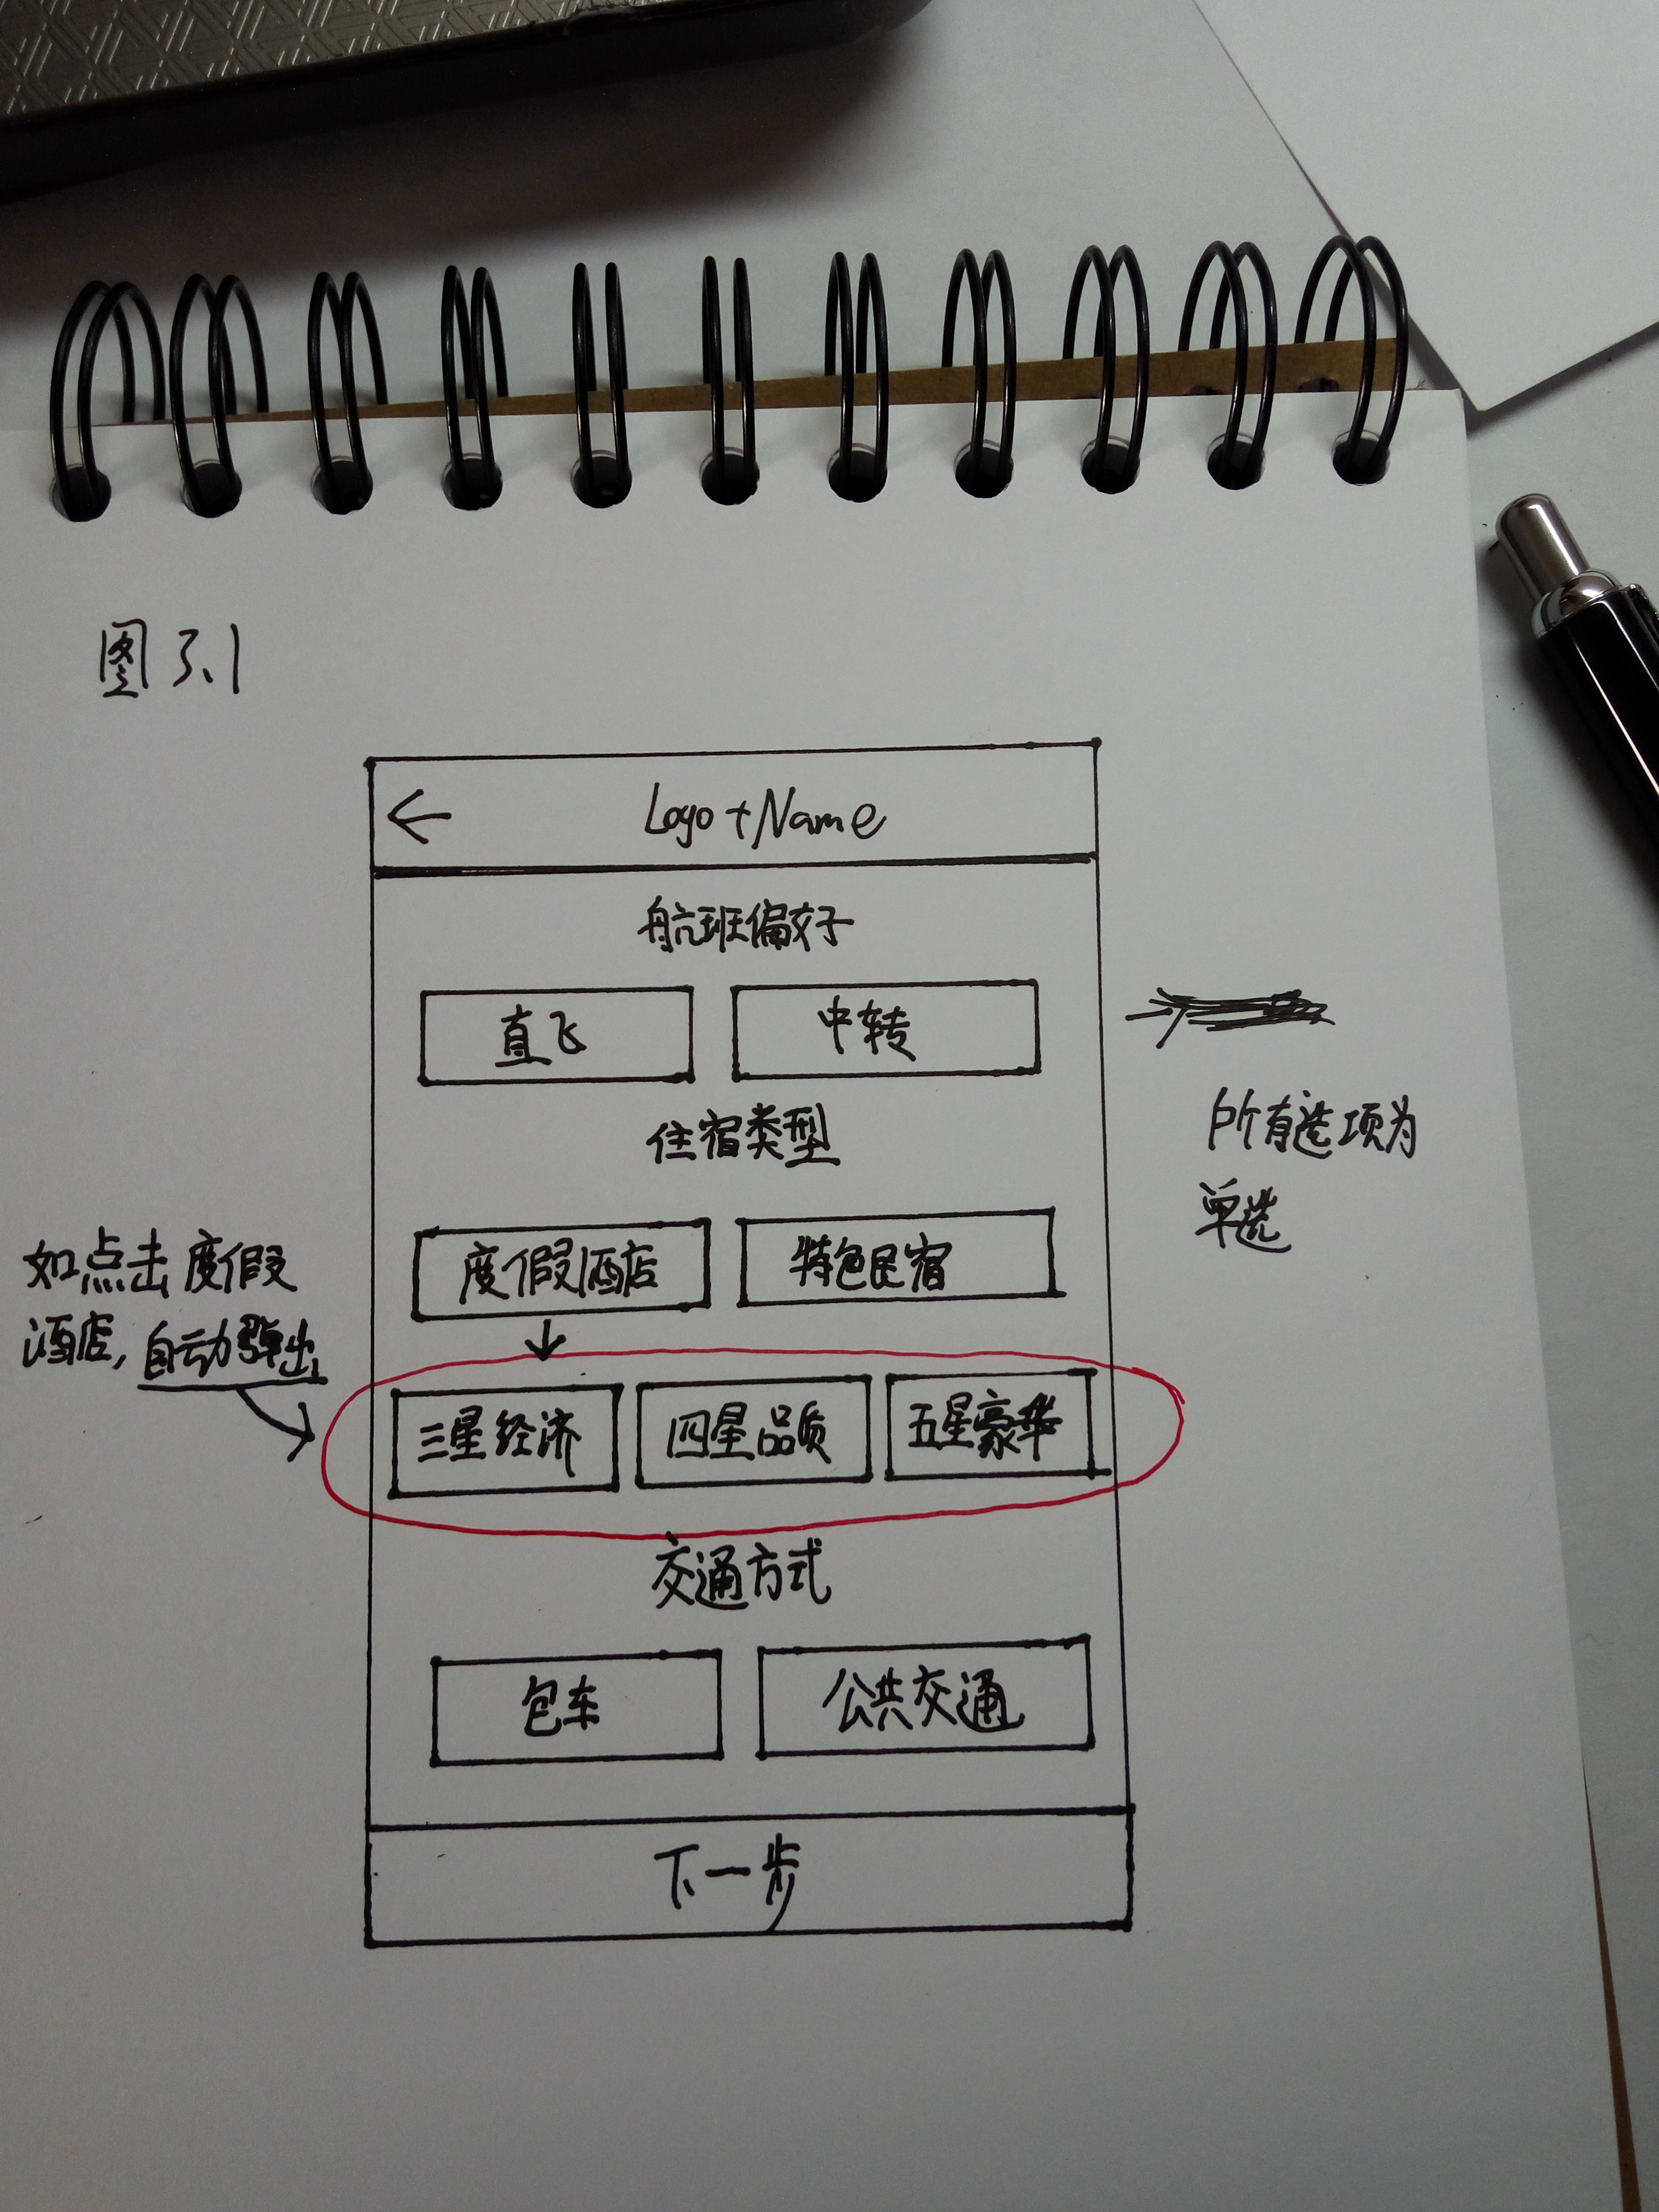 图3.1
← Logo+Name
航班偏好
直飞 中转
所有选项为
单选
住宿类型
度假酒店 特色民宿
如点击度假
酒店,自动弹出
三星经济 四星品质 五星豪华
交通方式
包车 公共交通
下一步